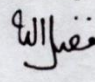 فضل الله